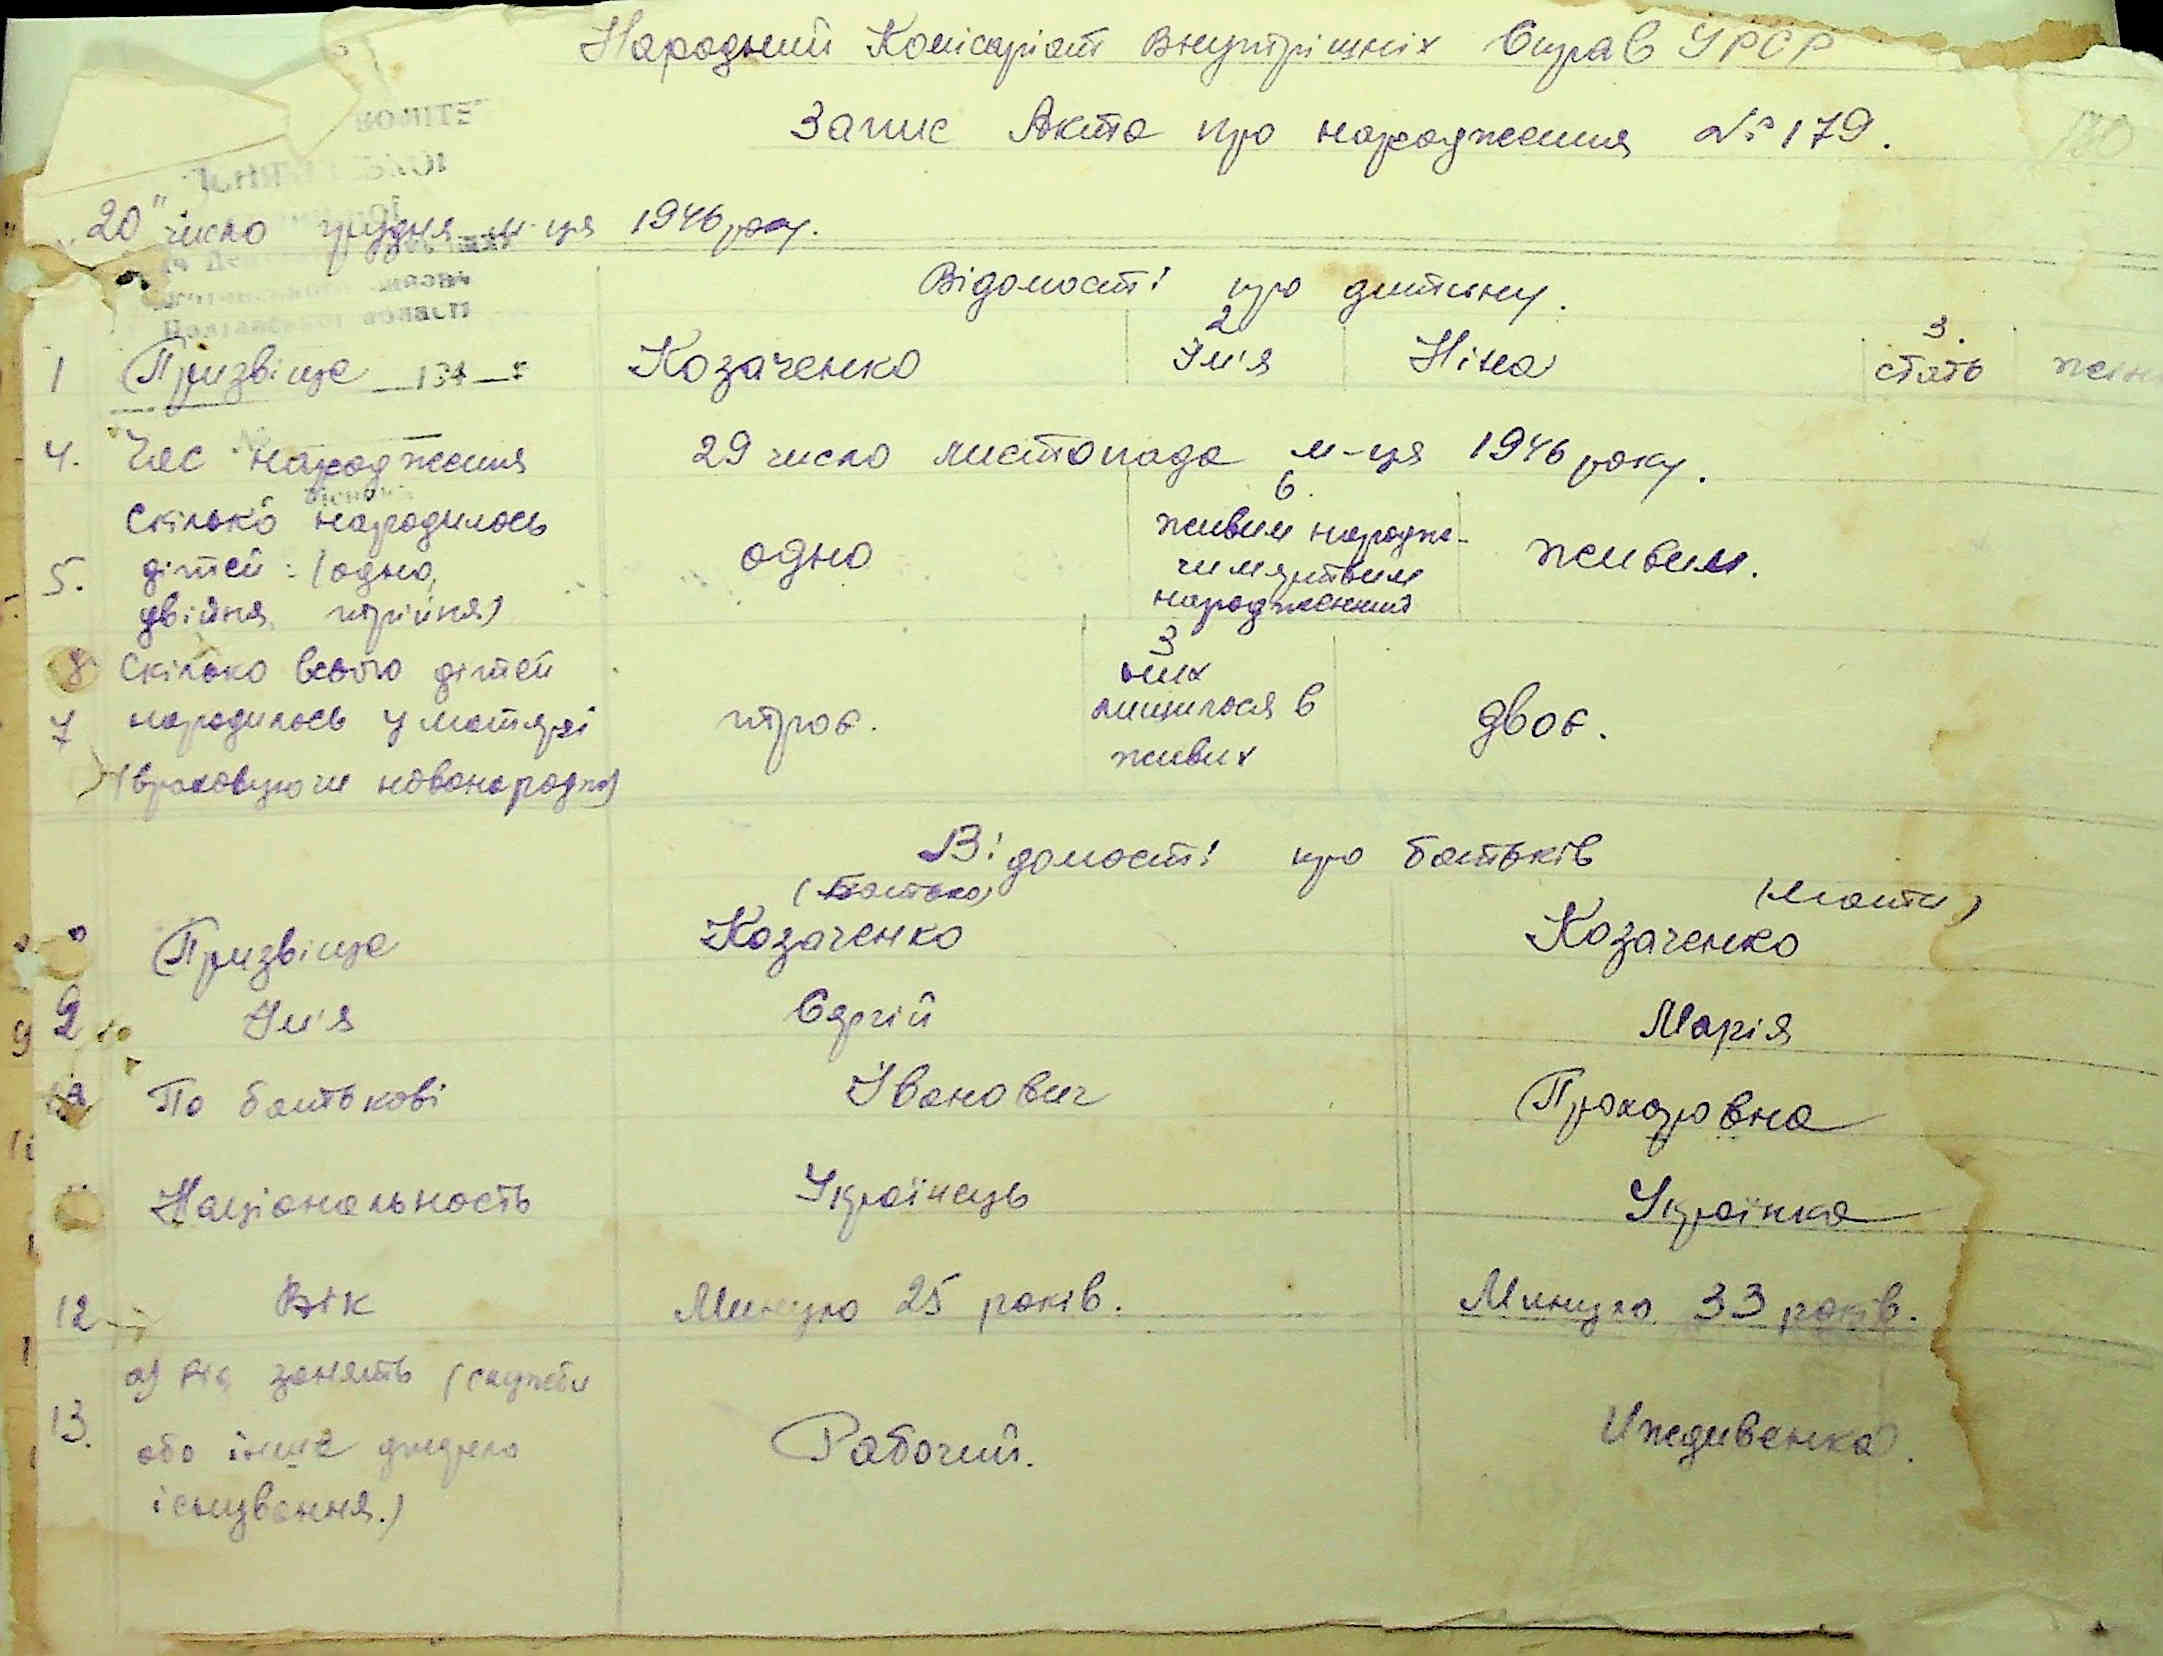 Народний Комісаріат Внутрішніх Справ УРСР
Запис Акта про народження № 179.
20" число грудня м-ця 1946 року.
Відомості про дитину.
1 Призвіще Козаченко 2 Ім'я Ніна 3. стать жін
4. Час народження 29 число листопада м-ця 1946 року.
5. Скілько народилось дітей: (одно, двійня, трійня) одно 6. живим народже- чи мертвим народженний живим.
7 Скілько всього дітей народилось у матері (враховуючи новонародж) троє. 8 З них лишилося в живих двоє.
Відомості про батьків
(Батько) (Мати)
8 Призвіще Козаченко Козаченко
9 Ім'я Сергій Марія
10 По батькові Іванович Прохоровна
Національность Українець Українка
12 Вік Минуло 25 років. Минуло 33 років.
13. а) Рід занять (служби або інше джерело існування.) Рабочий. Иждивенка.